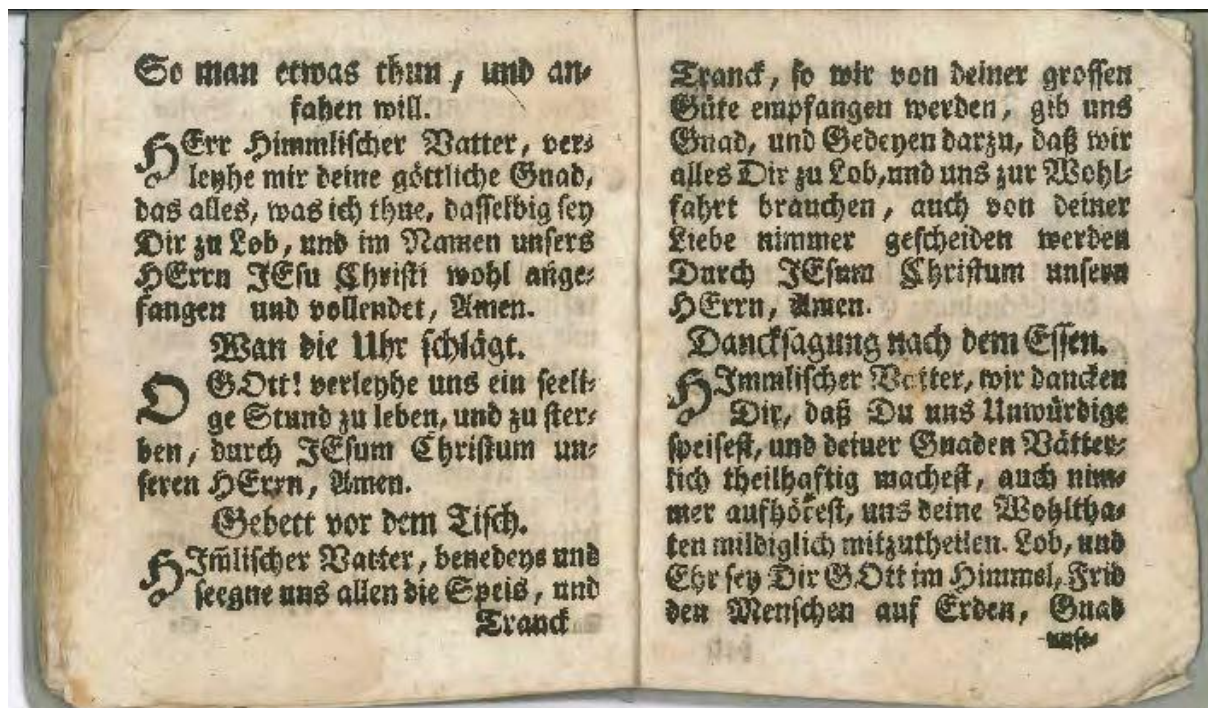 So man etwas thun, und an-
fahen will.
HErr Himmlischer Vatter, ver-
leyhe mir deine göttliche Gnad,
das alles, was ich thue, dasselbig sey
Dir zu Lob, und im Namen unsers
HErrn JEsu Christi wohl ange-
fangen und vollendet, Amen.
Wan die Uhr schlägt.
O GOtt! verleyhe uns ein seeli-
ge Stund zu leben, und zu ster-
ben, durch JEsum Christum un-
seren HErrn, Amen.
Gebett vor dem Tisch.
HIm̃lischer Vatter, benedeye und
seegne uns allen die Speis, und
Tranck
Tranck, so wir von deiner grossen
Güte empfangen werden, gib uns
Gnad, und Gedeyen darzu, daß wir
alles Dir zu Lob, und uns zur Wohl-
fahrt brauchen, auch von deiner
Liebe nimmer gescheiden werden
Durch JEsum Christum unsern
HErrn, Amen.
Dancksagung nach dem Essen.
HImmlischer Vatter, wir dancken
Dir, daß Du uns Unwürdige
speisest, und deiuer Gnaden Vätter-
lich theilhaftig machest, auch nim-
mer aufhörest, uns deine Wohltha-
ten mildiglich mitzutheilen. Lob, und
Ehr sey Dir GOtt im Himmel, Frid
den Menschen auf Erden, Gnad
unse-